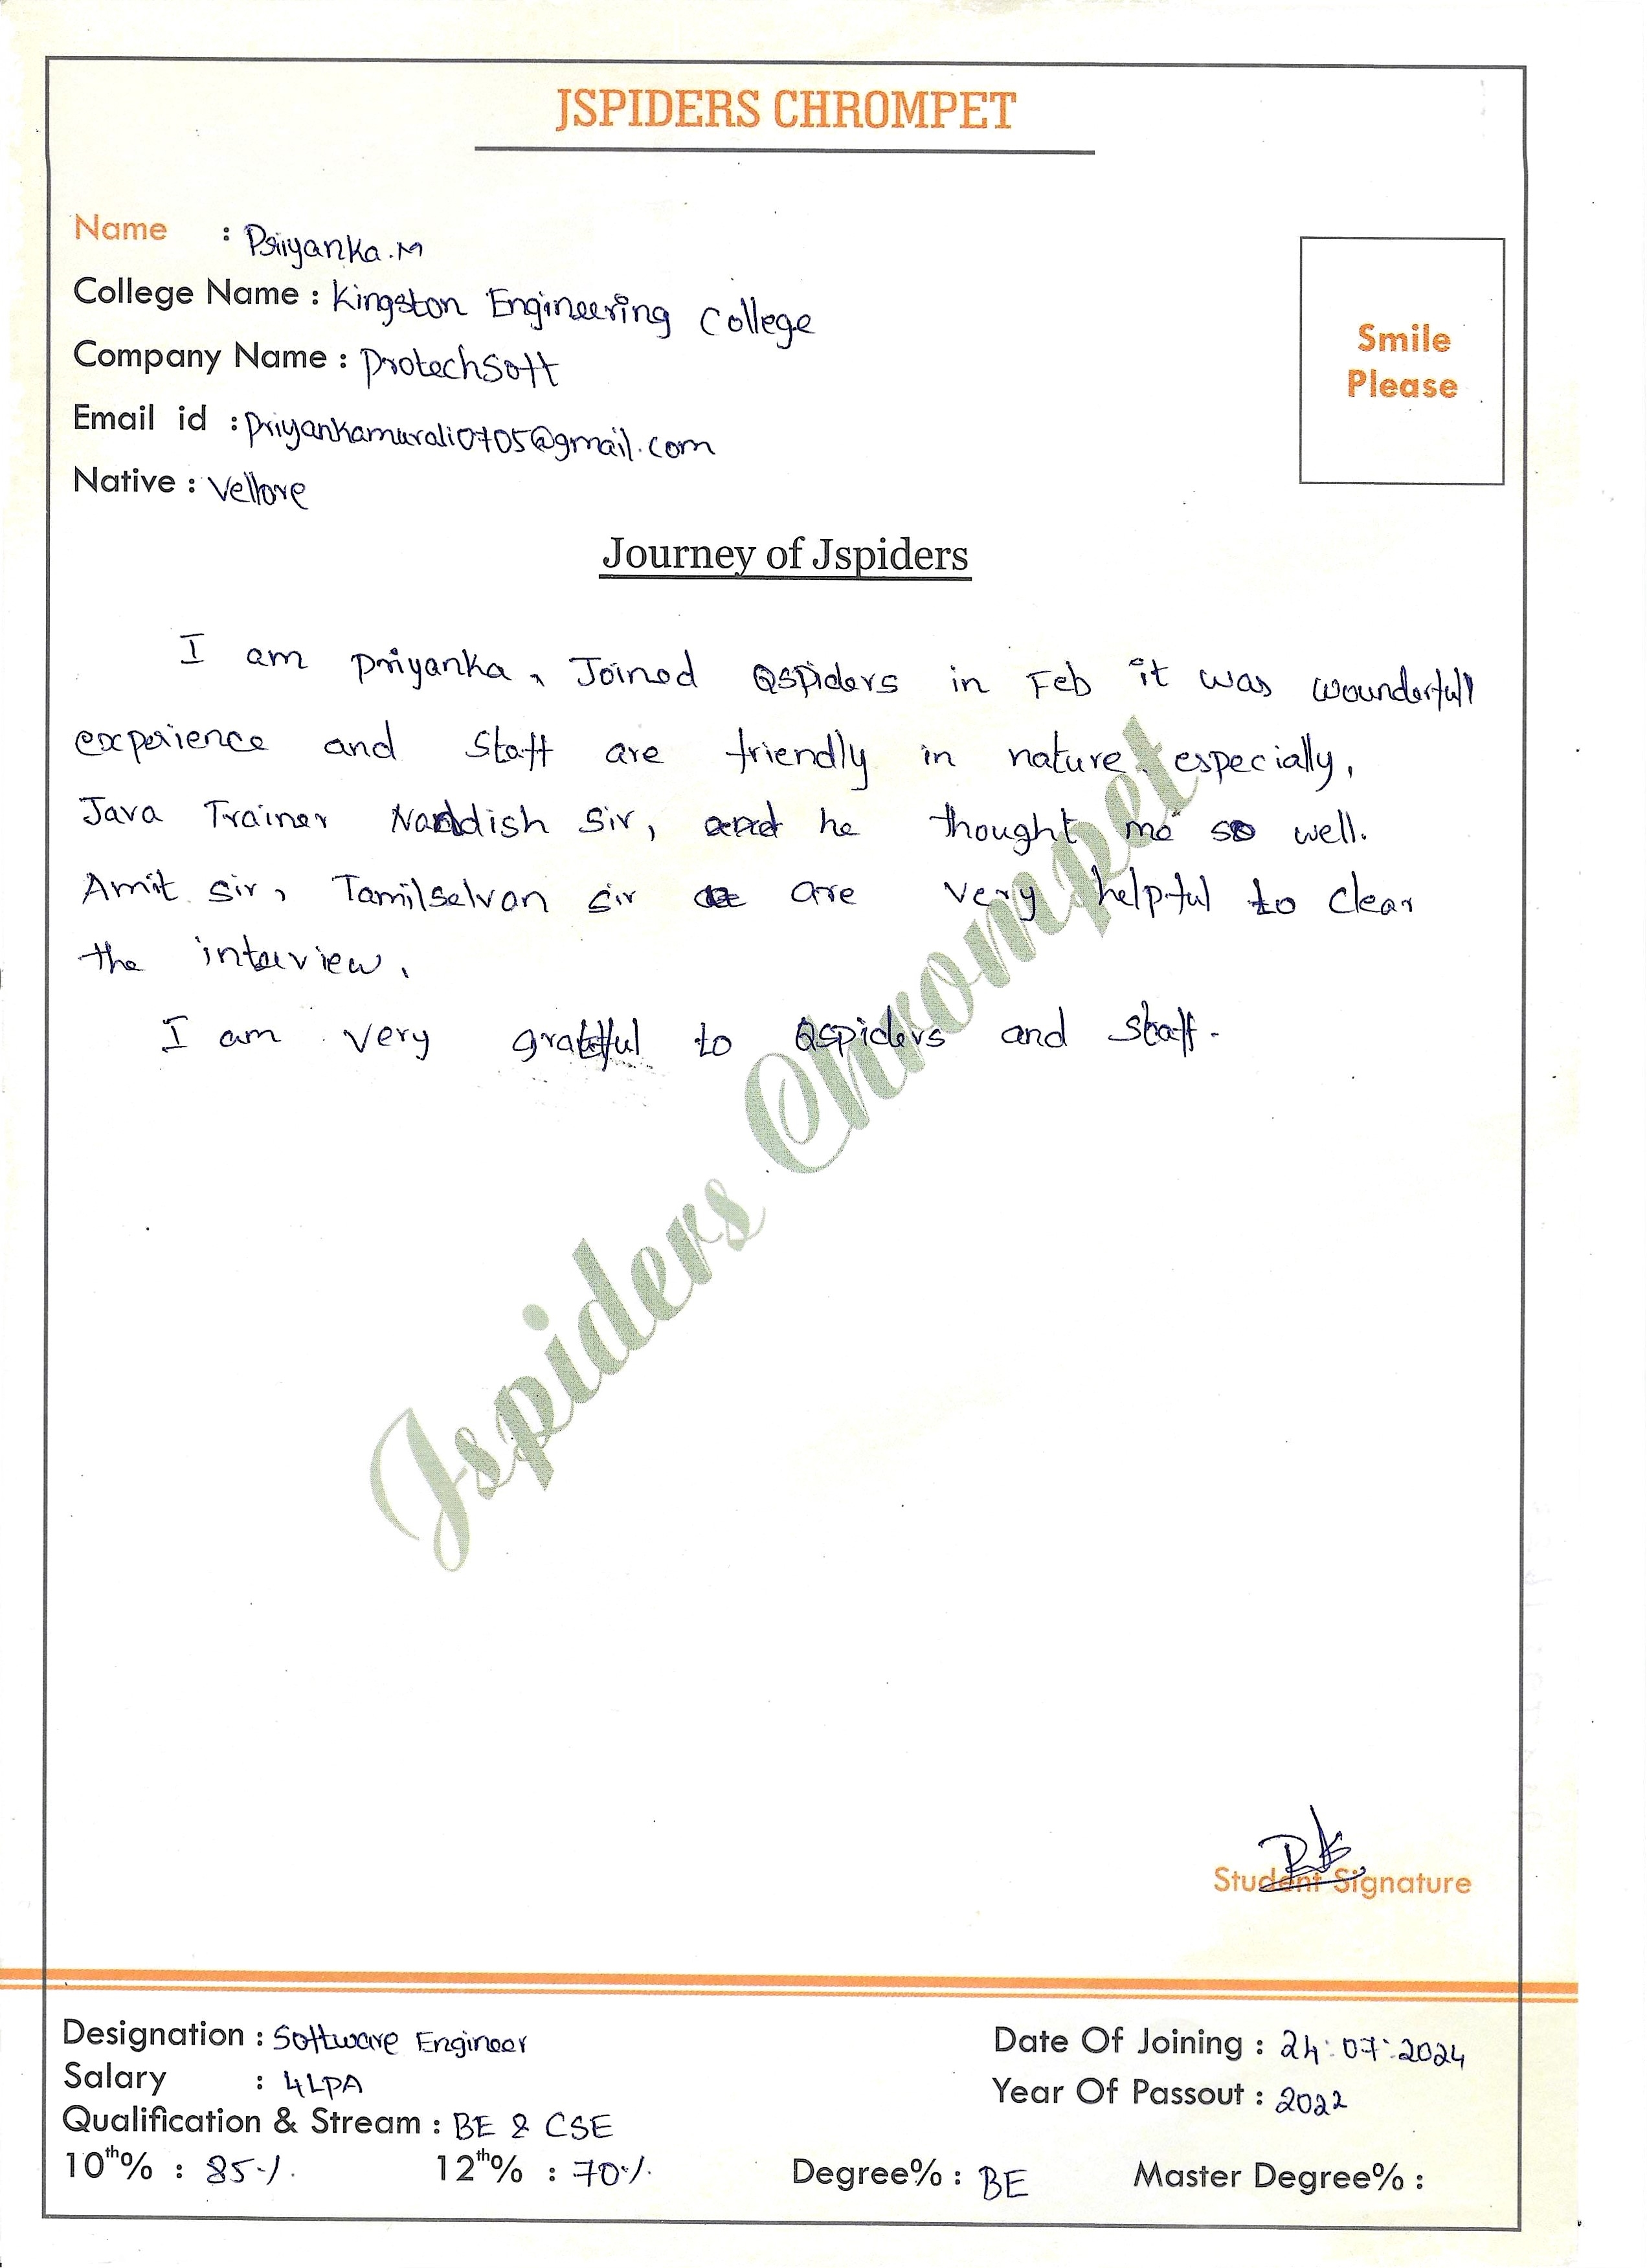 JSPIDERS CHROMPET
Name : Priyanka.M
College Name : Kingston Engineering College
Company Name : Protechsoft
Email id : Priyankamurali0705@gmail.com
Native : Vellore
Smile
Please
Journey of Jspiders
I am Priyanka, Joined Qspiders in Feb it was wounderfull
experience and Staff are friendly in nature. especially,
Java Trainer Nandish Sir, and he thought me so well.
Amit sir, Tamilselvan sir are very helpful to clear
the interview.
I am very grateful to Qspiders and staff.
Jspiders Chrompet
Student Signature
Designation : Software Engineer
Date Of Joining : 24.07.2024
Salary : 4LPA
Year Of Passout : 2022
Qualification & Stream : BE & CSE
10th% : 85% 12th% : 70% Degree% : BE Master Degree% :